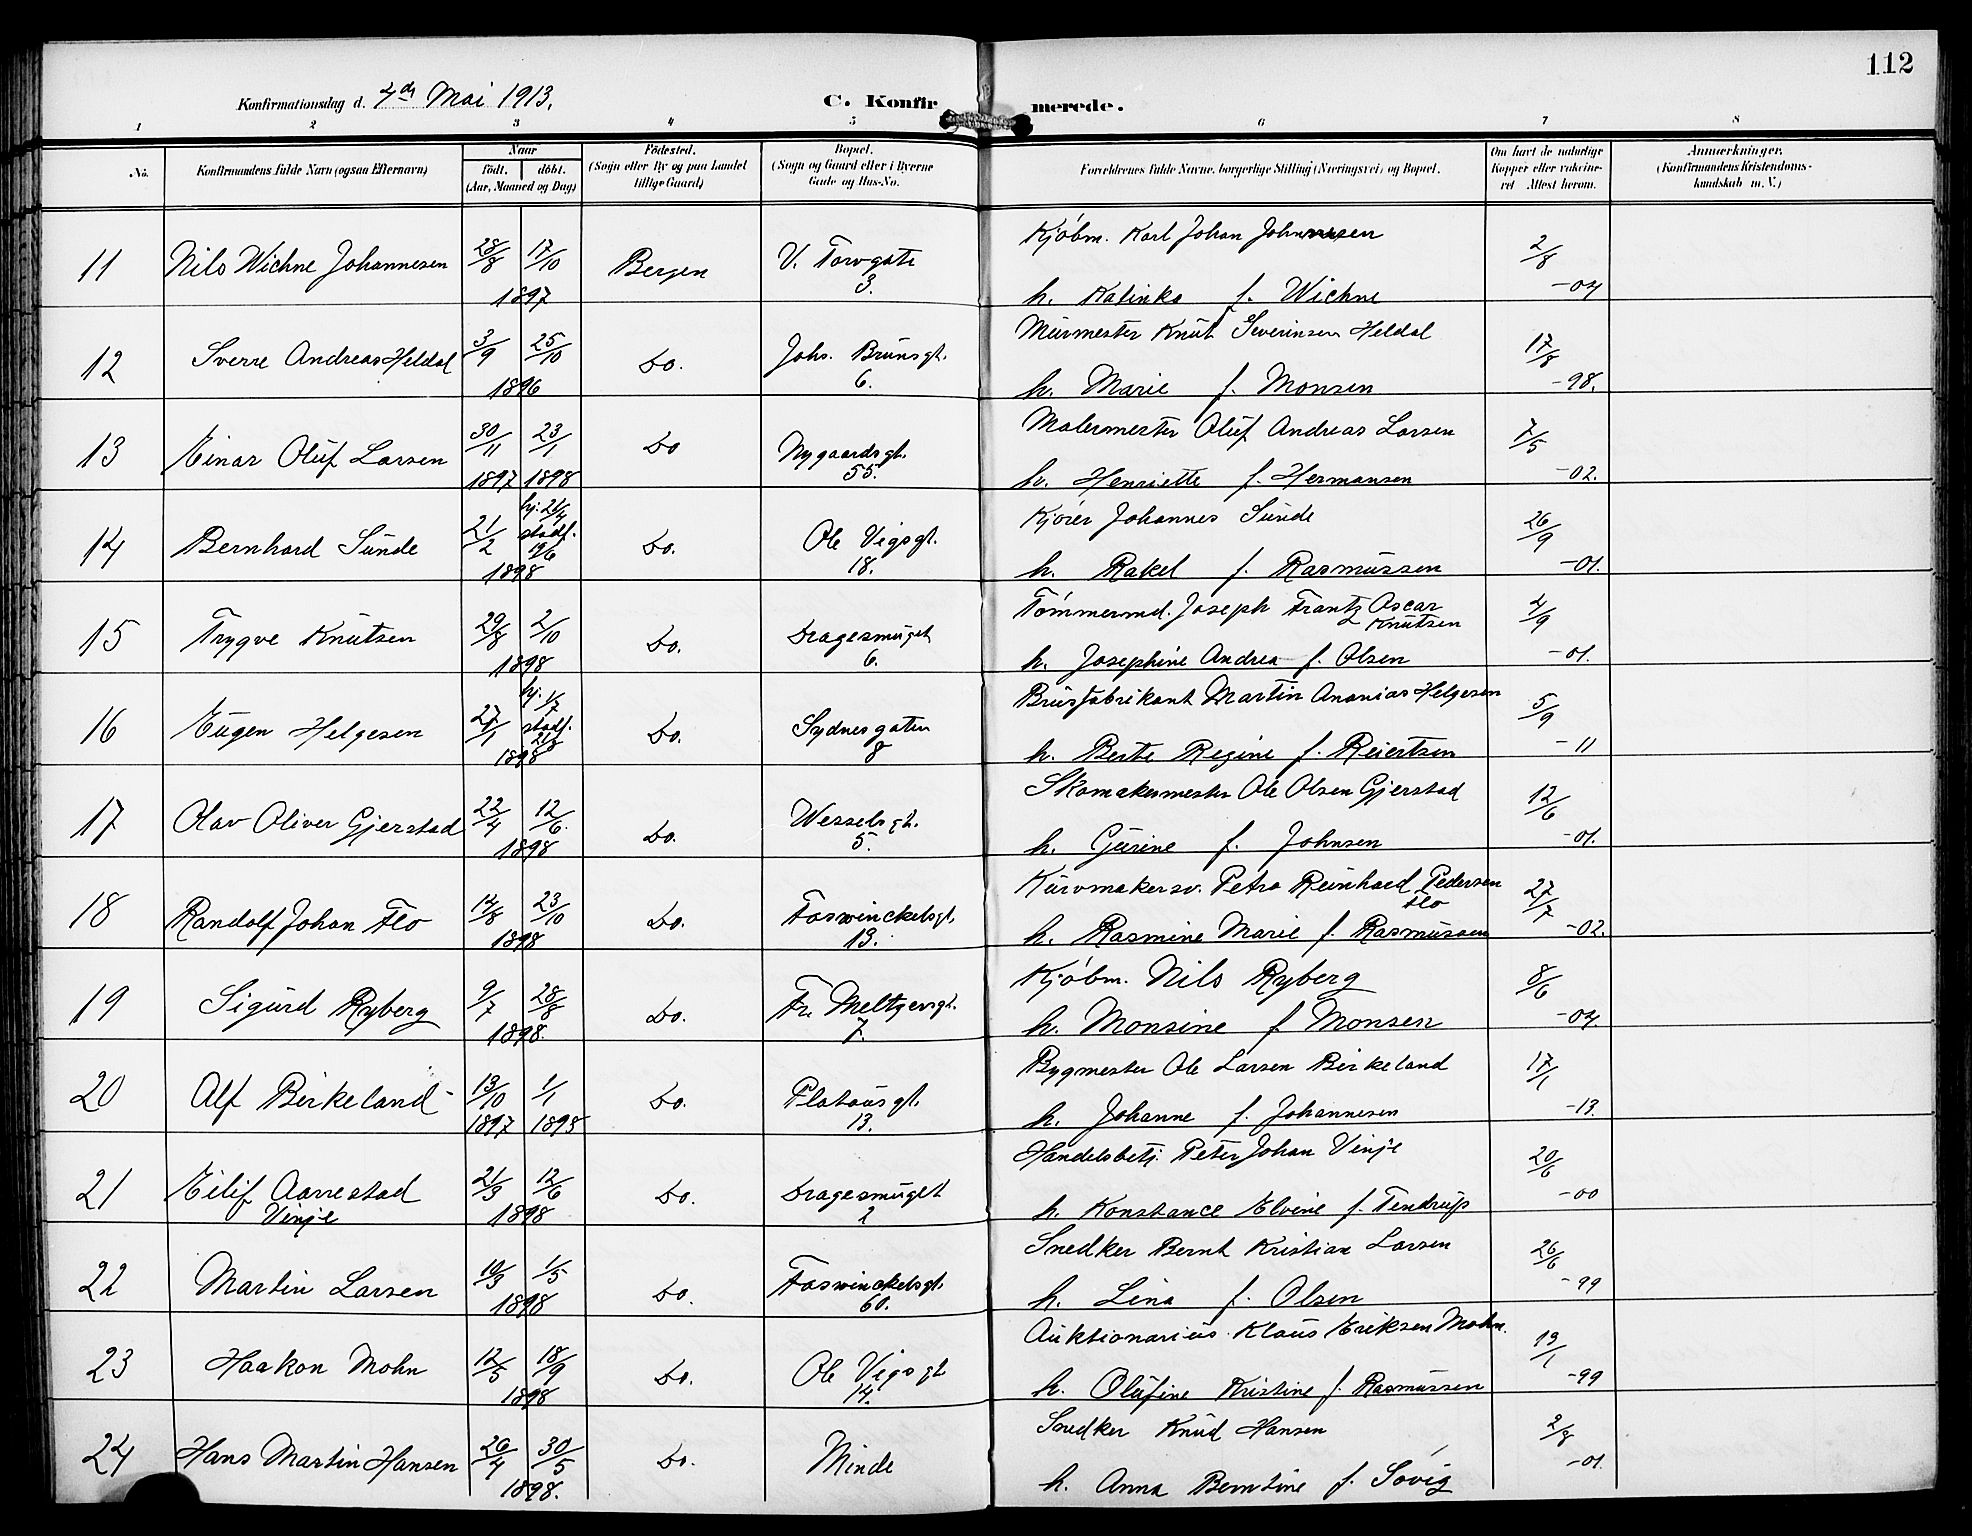 112
Konfirmationsdag d. 4de Mai 1913.
C. Konfirmerede.
1 2 3 4 5 6 7 8
No. Konfirmandens fulde Navn (ogsaa Efternavn) Naar født. døbt. (Aar, Maaned og Dag) Fødested. (Sogn eller By og paa Landet tillige Gaard) Bopæl. (Sogn og Gaard eller i Byerne Gade og Hus-No. Forældrenes fulde Navne, borgerlige Stilling (Næringsvei) og Bopæl. Om havt de naturlige Kopper eller vakcineret Attest herom. Anmærkninger. (Konfirmandens Kristendomskundskab m. V.)
11 Nils Wichne Johannesen 28/8 17/10 1897 Bergen V. Torvgate 3. Kjøbm. Karl Johan Johannesen 2/8
h. Katinka f. Wichne -04
12 Sverre Andreas Heldal 3/9 25/10 1896 Do. Johs. Brunsgt. 6. Murmester Knut Severinsen Heldal 17/8
h. Marie f. Monsen -98.
13 Einar Oluf Larsen 30/11 1897 23/1 1898 Do Nygaardsgt. 55. Malermester Oluf Andreas Larsen 7/5
h. Henriette f. Hermansen -02.
14 Bernhard Sunde 21/2 hj. 21/4 stadf. 19/6 1898 Do. Ole Vigsgt. 18. Kjører Johannes Sunde 26/9
h. Rakel f. Rasmussen -01.
15 Trygve Knutsen 29/8 2/10 1898 Do. Dragesmuget 6. Tømmermd. Joseph Frantz Oscar Knutsen 4/9
h. Josephine Andrea f. Olsen -01.
16 Eugen Helgesen 27/1 hj. 1/7 stadf. 21/8 1898 Do. Sydnesgaten 8 Brusfabrikant Martin Ananias Helgesen 5/9
h. Berte Regine f. Reiertsen -11
17 Olav Oliver Gjerstad 22/4 12/6. 1898 Do. Wesselsgt. 5. Skomakermester Ole Olsen Gjerstad 12/6
h. Gurine f. Johnsen -01.
18 Randolf Johan Flo 14/8 23/10 1898 Do. Foswinckelsgt. 13. Kurvmakersv. Petro Reinhard Pedersen Flo 27/7
h. Rasmine Marie f. Rasmussen -02.
19 Sigurd Ryberg 9/7 28/8 1898. Do. Fr. Meltzersgt. 7. Kjøbm. Nils Ryberg 8/6
h. Monsine f Monsen -04.
20 Alf Birkeland 13/10 1897 1/1 1898 Do. Platousgt. 13. Bygmester Ole Larsen Birkeland 17/1
h. Johanne f. Johannesen -13.
21 Eilif Aarrestad Vinje 21/3 12/6 1898 Do. Dragesmuget 2 Handelsbetj. Peter Johan Vinje 20/6
h. Konstance Elvine f. Tendrup -00
22 Martin Larsen 19/3 1/5 1898 Do. Foswinckelsgt. 60. Snedker Bernt Kristian Larsen 26/6
h. Lina f. Olsen -99
23 Haakon Mohn 12/5 18/9 1898 Do. Ole Vigsgt 14. Auktionarius Klaus Eriksen Mohn. 19/1
h. Olufine Kristine f. Rasmussen -99
24 Hans Martin Hansen 26/4 30/5 1898. Do. Minde Snedker Knud Hansen 2/8
h. Anna Berntine f. Søvig -01.